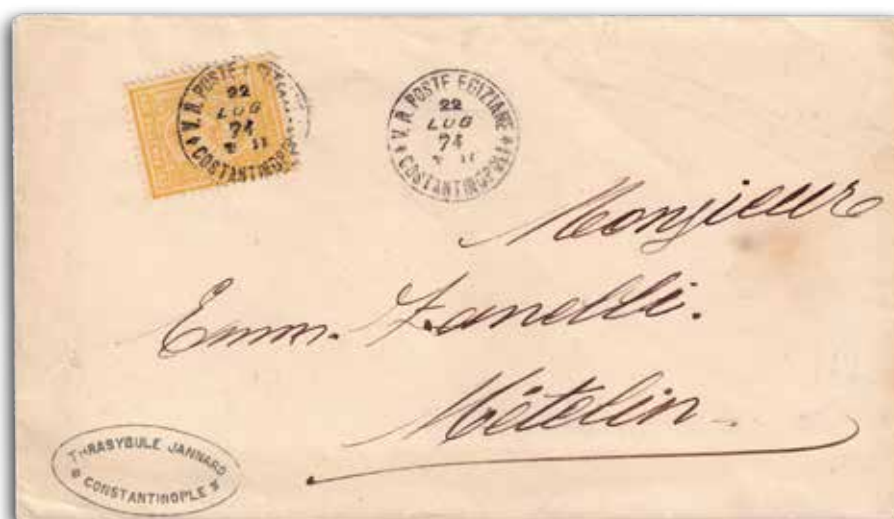 V. R. POSTE EGIZIANE
22
LUG
74
COSTANTINOPOLI
V. R. POSTE
22
LUG
74
COSTANTINOPOLI
Monsieur
Emm. Zanelli.
Mételin
THRASYBULE JANNARO
CONSTANTINOPLE